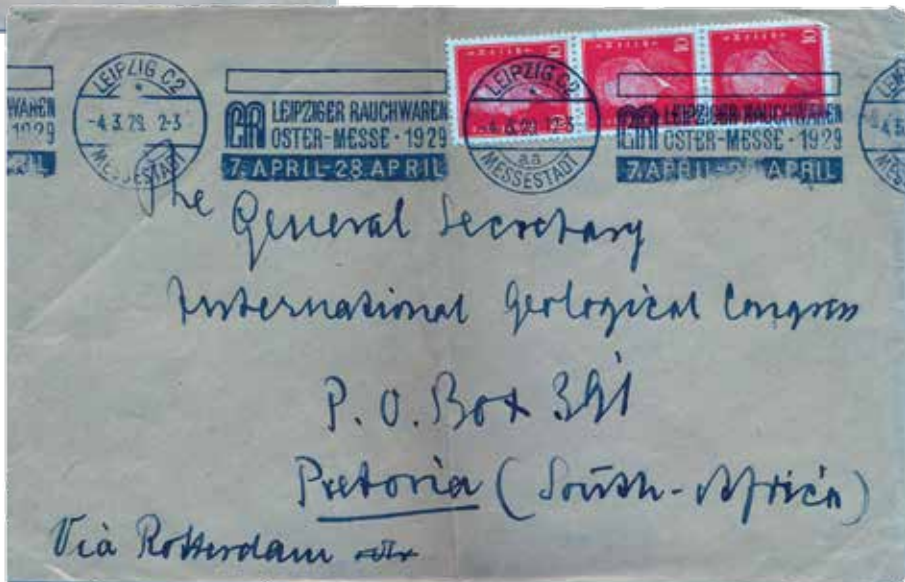 LEIPZIG C2
-4.3.29. 2-3
MESSESTADT
LEIPZIGER RAUCHWAREN
OSTER-MESSE · 1929
7. APRIL-28. APRIL
10 10 10
LEIPZIG C2
-4.3.29. 2-3
aa
MESSESTADT
LEIPZIGER RAUCHWAREN
OSTER-MESSE · 1929
7. APRIL-28. APRIL
WAREN
1929
RIL
The
General Secretary
International Geological Congress
P. O. Box 391
Pretoria (South-Africa)
Via Rotterdam